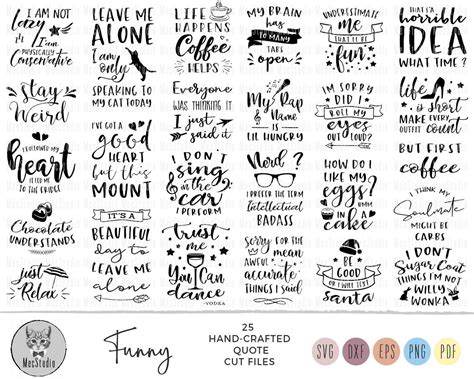 I AM NOT
Lazy
I AM
PHYSICALLY
Conservative
stay
Weird
I FOLLOWED MY
heart
IT LED ME
TO THE FRIDGE
Chocolate
UNDERSTANDS
just
Relax
LEAVE ME
ALONE
I am
only
SPEAKING TO
MY CAT TODAY
I'VE GOT A
good
HEART
but this
MOUNT
IT'S A
BEAUTIFUL
day to
LEAVE ME
alone
LIFE
HAPPENS
Coffee
HELPS
Everyone
WAS THINKING IT
I just
said it
I DON'T
Sing
in the
car
I PERFORM
trust
me
You Can
dance
-VODKA
MY BRAIN
has
TO MANY
tabs
open
My Rap
Name
is
LIL HUNGRY
Nerd?
I PREFER THE TERM
Intellectual
BADASS
Sorry FOR THE
MEAN
AWFUL
accurate
THINGS I SAID
UNDERESTIMATE
me
THAT'LL
be
FUN
I'M SORRY
DID I
ROLL MY
eyes
OUT LOUD?
HOW DO I
LIKE MY
eggs?
UMM
in
CAKE
BE
GOOD
OR I WILL TEXT
santa
THAT'S A
horrible
IDEA
WHAT TIME?
life
IS
Short
MAKE EVERY
OUTFIT COUNT
BUT FIRST
coffee
I THINK MY
Soulmate
MIGHT BE
CARBS
I DON'T
Sugar Coat
THINGS I'M NOT
WILLY
WONKA
MecStudio
Funny
25
HAND-CRAFTED
QUOTE
CUT FILES
SVG
DXF
EPS
PNG
PDF